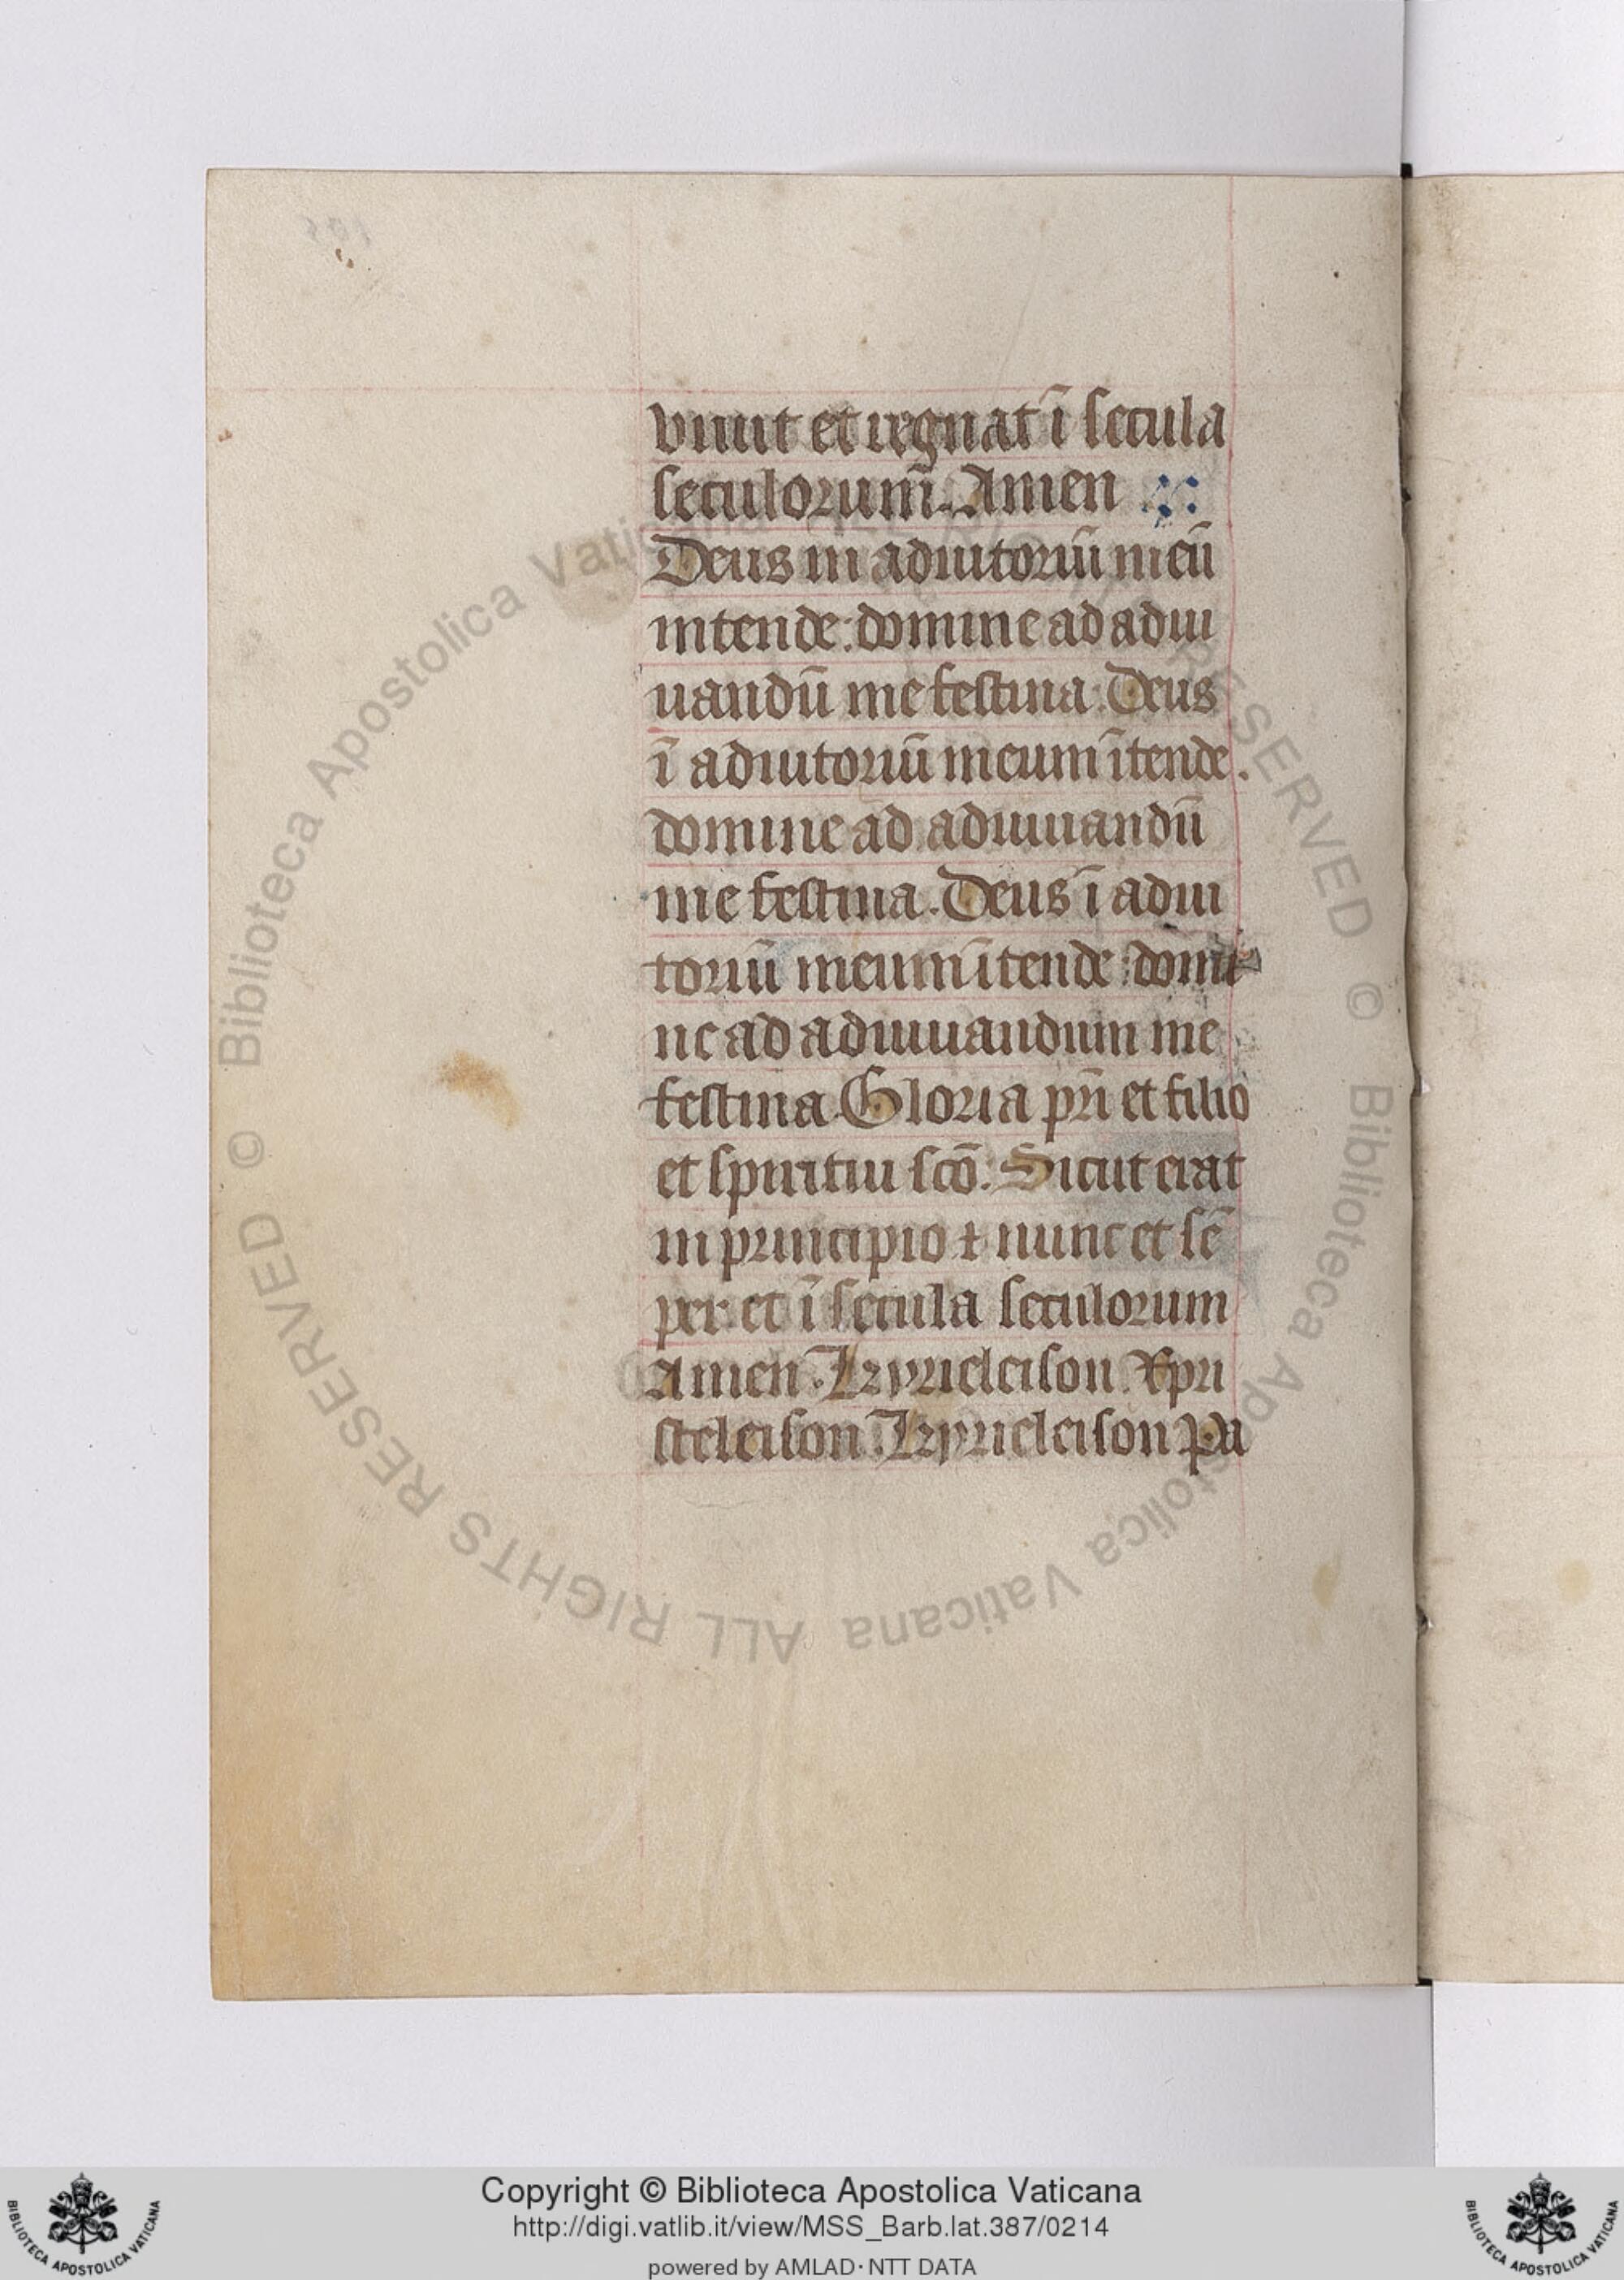 viuit et regnat ī secula
seculorum̄. Amen
Deus in adiutoriū meū
intende: domine ad adiu
uandū me festina. Deus
ī adiutoriū meum ītende.
domine ad adiuuandū
me festina. Deus ī adiu
toriū meum ītende: domi
ne ad adiuuandum me
festina. Gloria pr̄i et filio
et spiritui sc̄o. Sicut erat
in principio ⁊ nunc et sē
per et ī secula seculorum
Amen. Kyrieleison. Xpri
steleison. Kyrieleison Pa
Biblioteca Apostolica Vaticana ALL RIGHTS RESERVED ©
Biblioteca Apostolica Vaticana ALL RIGHTS RESERVED ©
Copyright © Biblioteca Apostolica Vaticana
http://digi.vatlib.it/view/MSS_Barb.lat.387/0214
powered by AMLAD·NTT DATA
BIBLIOTECA APOSTOLICA VATICANA
BIBLIOTECA APOSTOLICA VATICANA